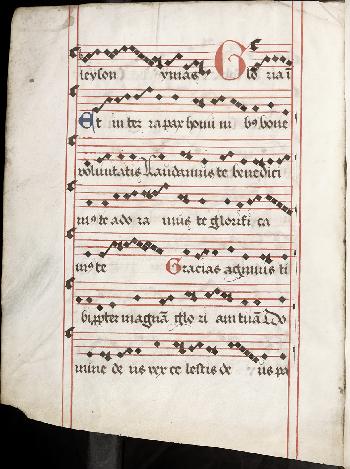 leyson ymas Glo ria i
Et in ter ra pax homi ni bꝰ bone
voluntatis Laudamus te benedici
mꝰ te ado ra mus te glorifi ca
mꝰ te Gracias agimus ti
bi ꝓpter magnā glo ri am tuā Do
mine de us rex ce lestis de us pa